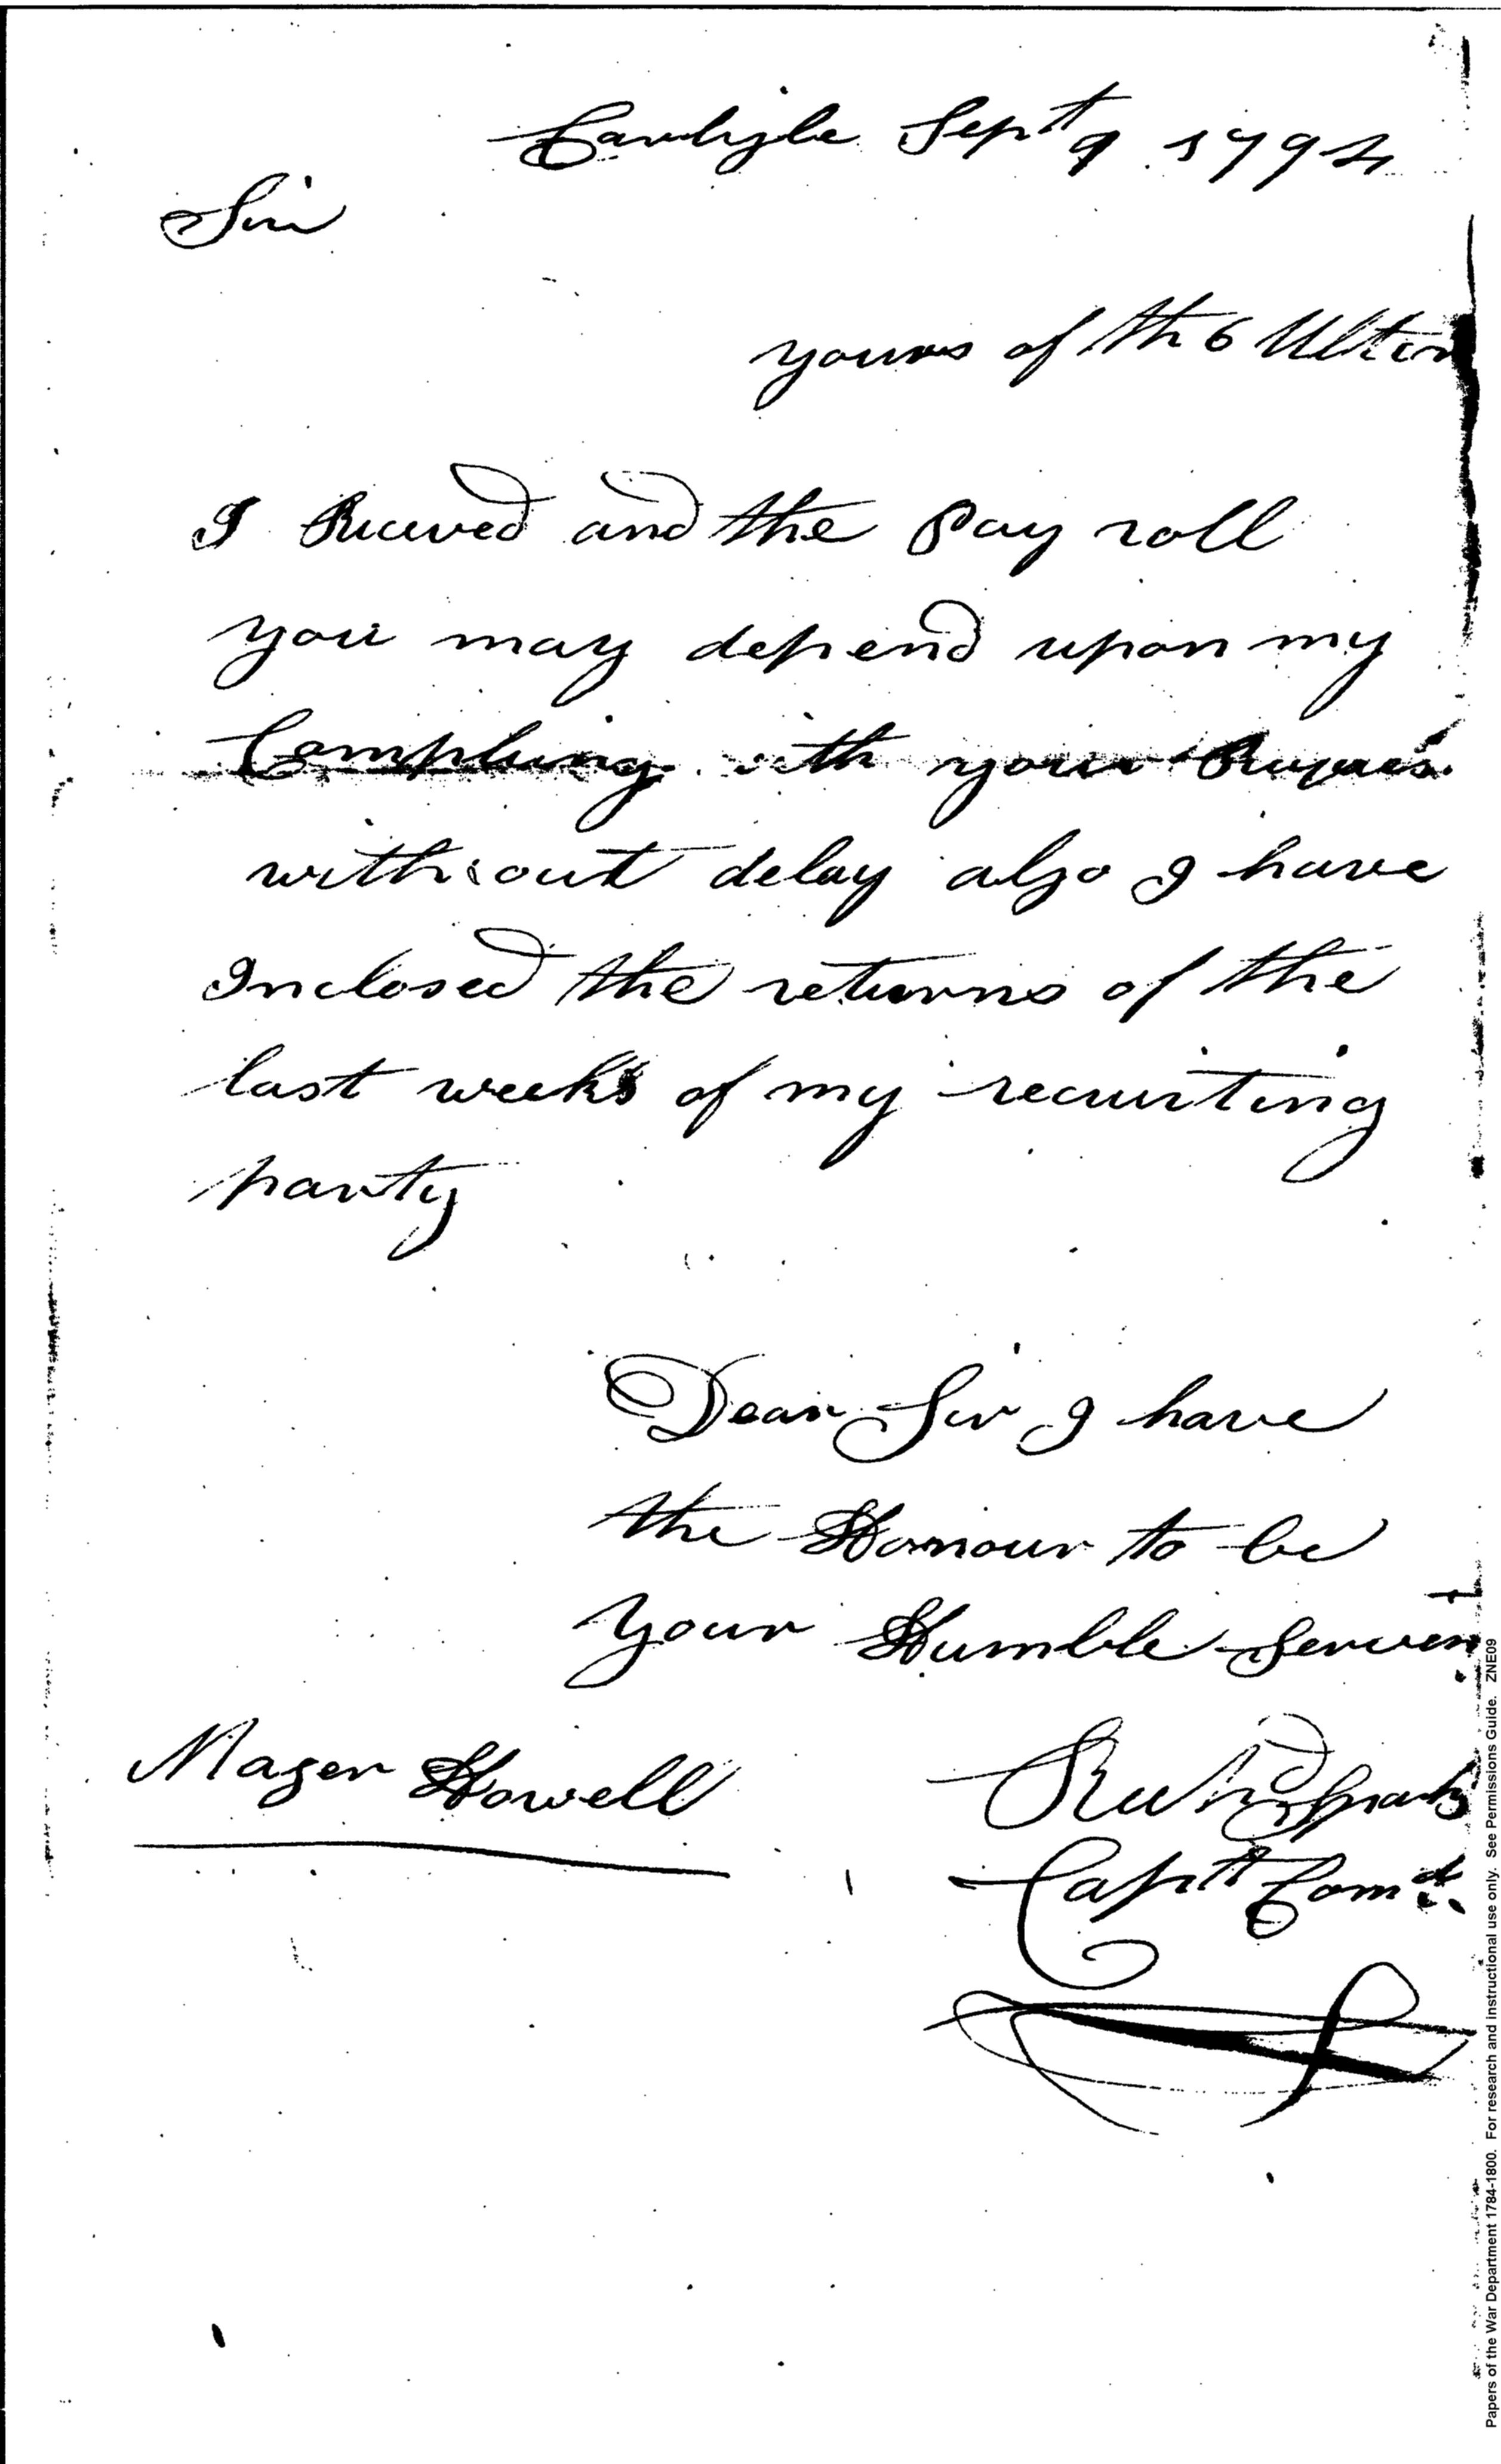 Carlisle Sept 9 1794
Sir
yours of th 6 Ultim
I Recived and the Pay roll
you may depend upon my
Compliing with your Reques
without delay also I have
Inclosed the returns of the
last weeks of my recruiting
party
Dear Sir I have
the Honour to be
your Humble Servent
Mager Howell
Richd Sparks
Captt Comdt.
Papers of the War Department 1784-1800. For research and instructional use only. See Permissions Guide. ZNE09